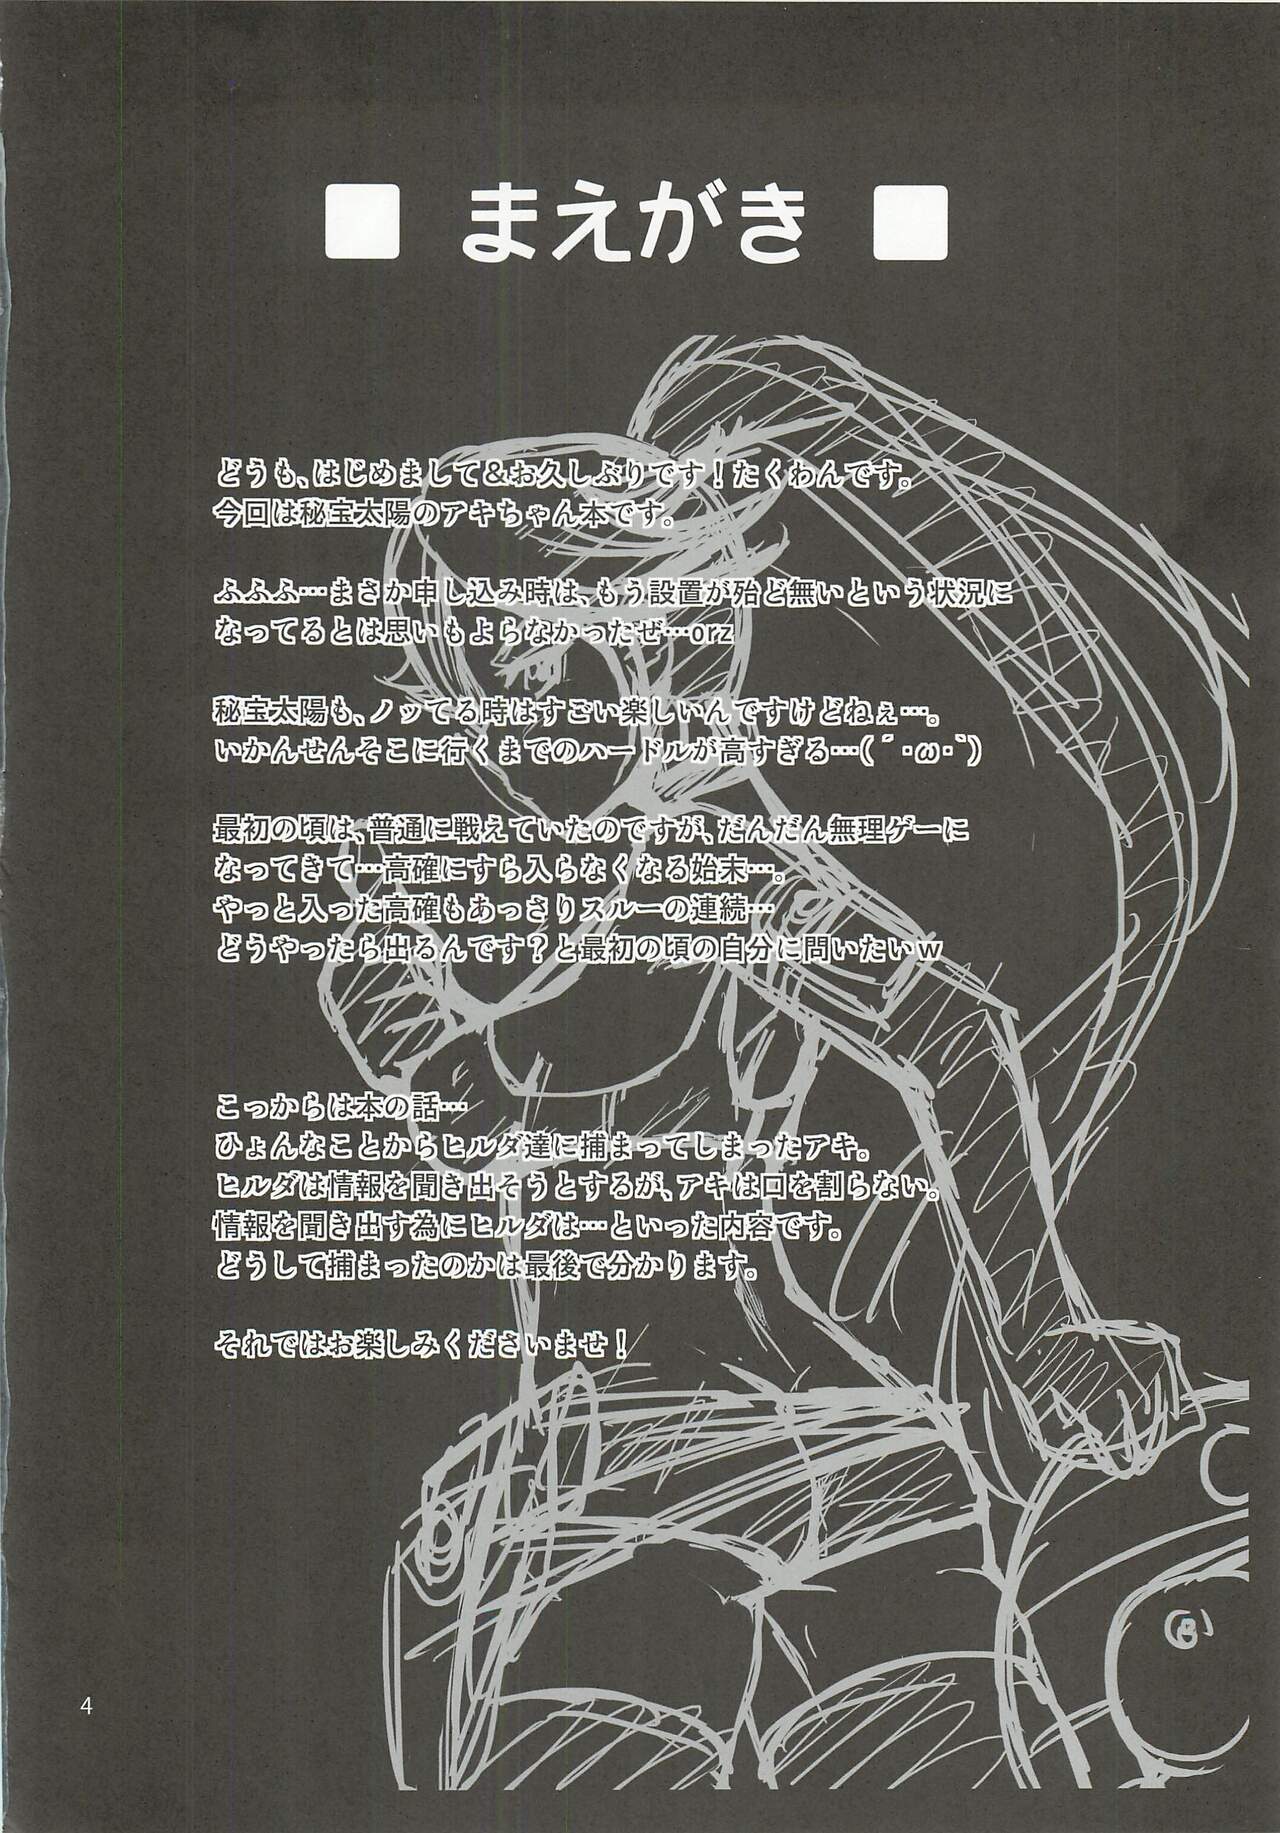 ■ まえがき ■
どうも、はじめまして&お久しぶりです！たくわんです。
今回は秘宝太陽のアキちゃん本です。
ふふふ…まさか申し込み時は、もう設置が殆ど無いという状況に
なってるとは思いもよらなかったぜ…orz
秘宝太陽も、ノッてる時はすごい楽しいんですけどねぇ…。
いかんせんそこに行くまでのハードルが高すぎる…(´・ω・`)
最初の頃は、普通に戦えていたのですが、だんだん無理ゲーに
なってきて…高確にすら入らなくなる始末…。
やっと入った高確もあっさりスルーの連続…
どうやったら出るんです？と最初の頃の自分に問いたいｗ
こっからは本の話…
ひょんなことからヒルダ達に捕まってしまったアキ。
ヒルダは情報を聞き出そうとするが、アキは口を割らない。
情報を聞き出す為にヒルダは…といった内容です。
どうして捕まったのかは最後で分かります。
それではお楽しみくださいませ！
4